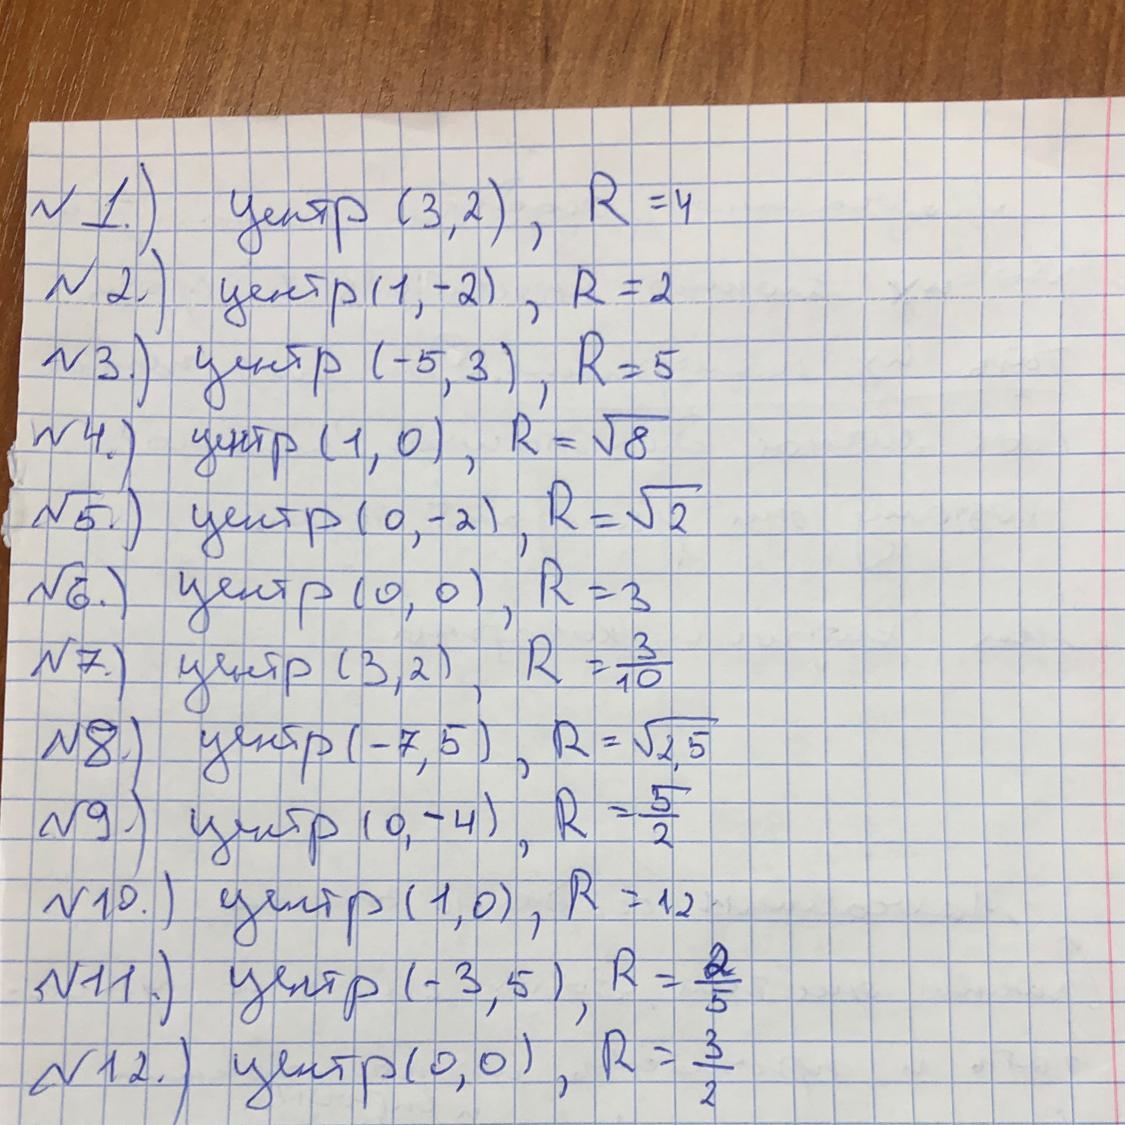 N 1.) центр (3,2), R = 4
N 2.) центр (1,-2), R = 2
N 3.) центр (-5,3), R = 5
N 4.) центр (1,0), R = √8
N 5.) центр (0,-2), R = √2
N 6.) центр (0,0), R = 3
N 7.) центр (3,2), R = 3/10
N 8.) центр (-7,5), R = √2,5
N 9.) центр (0,-4), R = 5/2
N 10.) центр (1,0), R = 12
N 11.) центр (-3,5), R = 2/5
N 12.) центр (0,0), R = 3/2